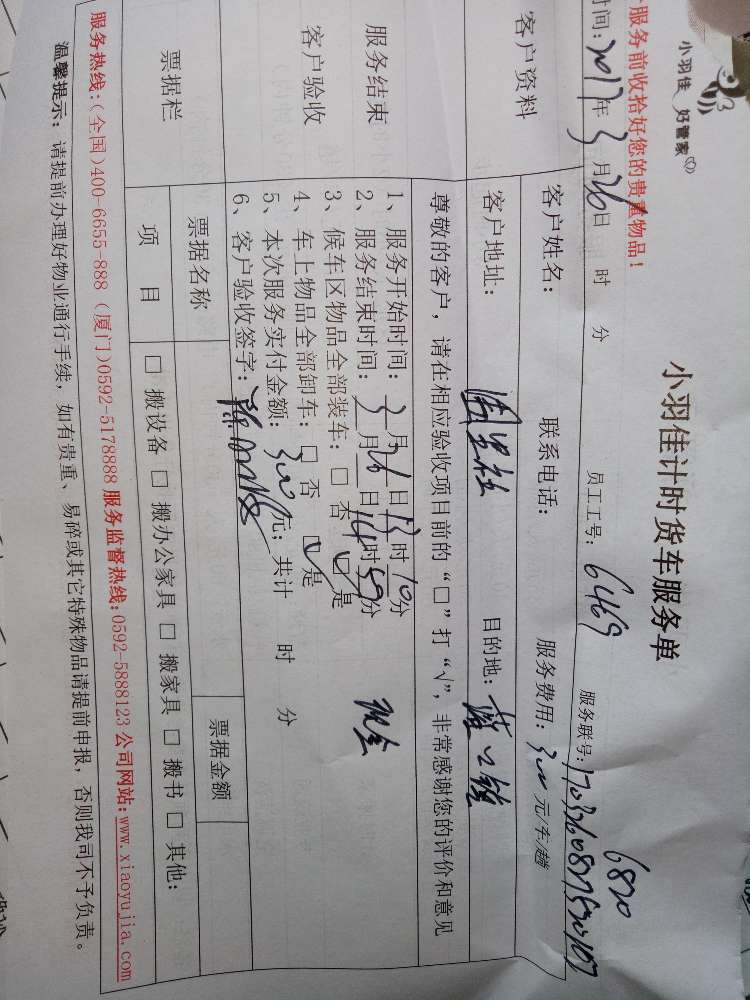 小羽佳 好管家
小羽佳计时货车服务单
服务前收拾好您的贵重物品！
时间：2017年3月26日 时 分 员工工号：6469 服务联号：
6820
客户资料
客户姓名： 联系电话： 服务费用：300元/车/趟
客户地址： 目的地：
服务结束
客户验收
尊敬的客户，请在相应验收项目前的“□”打“√”，非常感谢您的评价和意见
1、服务开始时间：3月26日13时10分
2、服务结束时间：3月26日14时59分 现金
3、候车区物品全部装车：□ 否 □ 是
4、车上物品全部卸车：□ 否 □ 是
5、本次服务实付金额：300元；共计 时 分
6、客户验收签字：
票据栏
票据名称 票据金额
项 目 □ 搬设备 □ 搬办公家具 □ 搬家具 □ 搬书 □ 其他：
服务热线：(全国)400-6655-888 (厦门)0592-5178888 服务监督热线：0592-5888123 公司网站：www.xiaoyujia.com
温馨提示：请提前办理好物业通行手续，如有贵重、易碎或其它特殊物品请提前申报，否则我司不予负责。